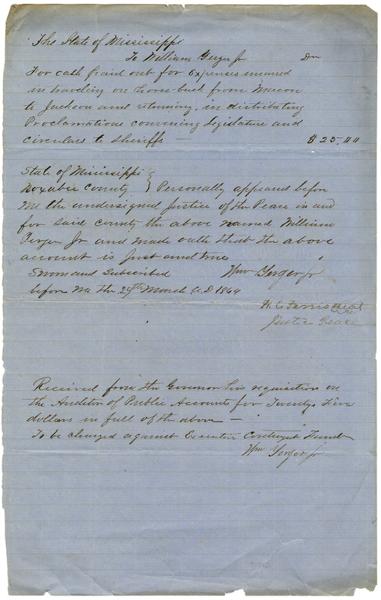 The State of Mississippi
To William Yerger Jr Dr
For cash paid out for expenses incurred
in traveling on horse back from Macon
to Jackson and returning, in distributing
Proclamations convening Legislature and
circulars to Sheriffs — $25.00
State of Mississippi }
Noxubee County } Personally appeared before
me the undersigned Justice of the Peace in and
for said county the above named William
Yerger Jr and made oath that the above
account is just and true
Sworn and subscribed Wm Yerger Jr
before me the 29th March A.D 1864
Justice Peace
Received from the Governor his requisition on
the Auditor of Public Accounts for Twenty Five
dollars in full of the above
To be charged against Executive Contingent Fund
Wm Yerger Jr